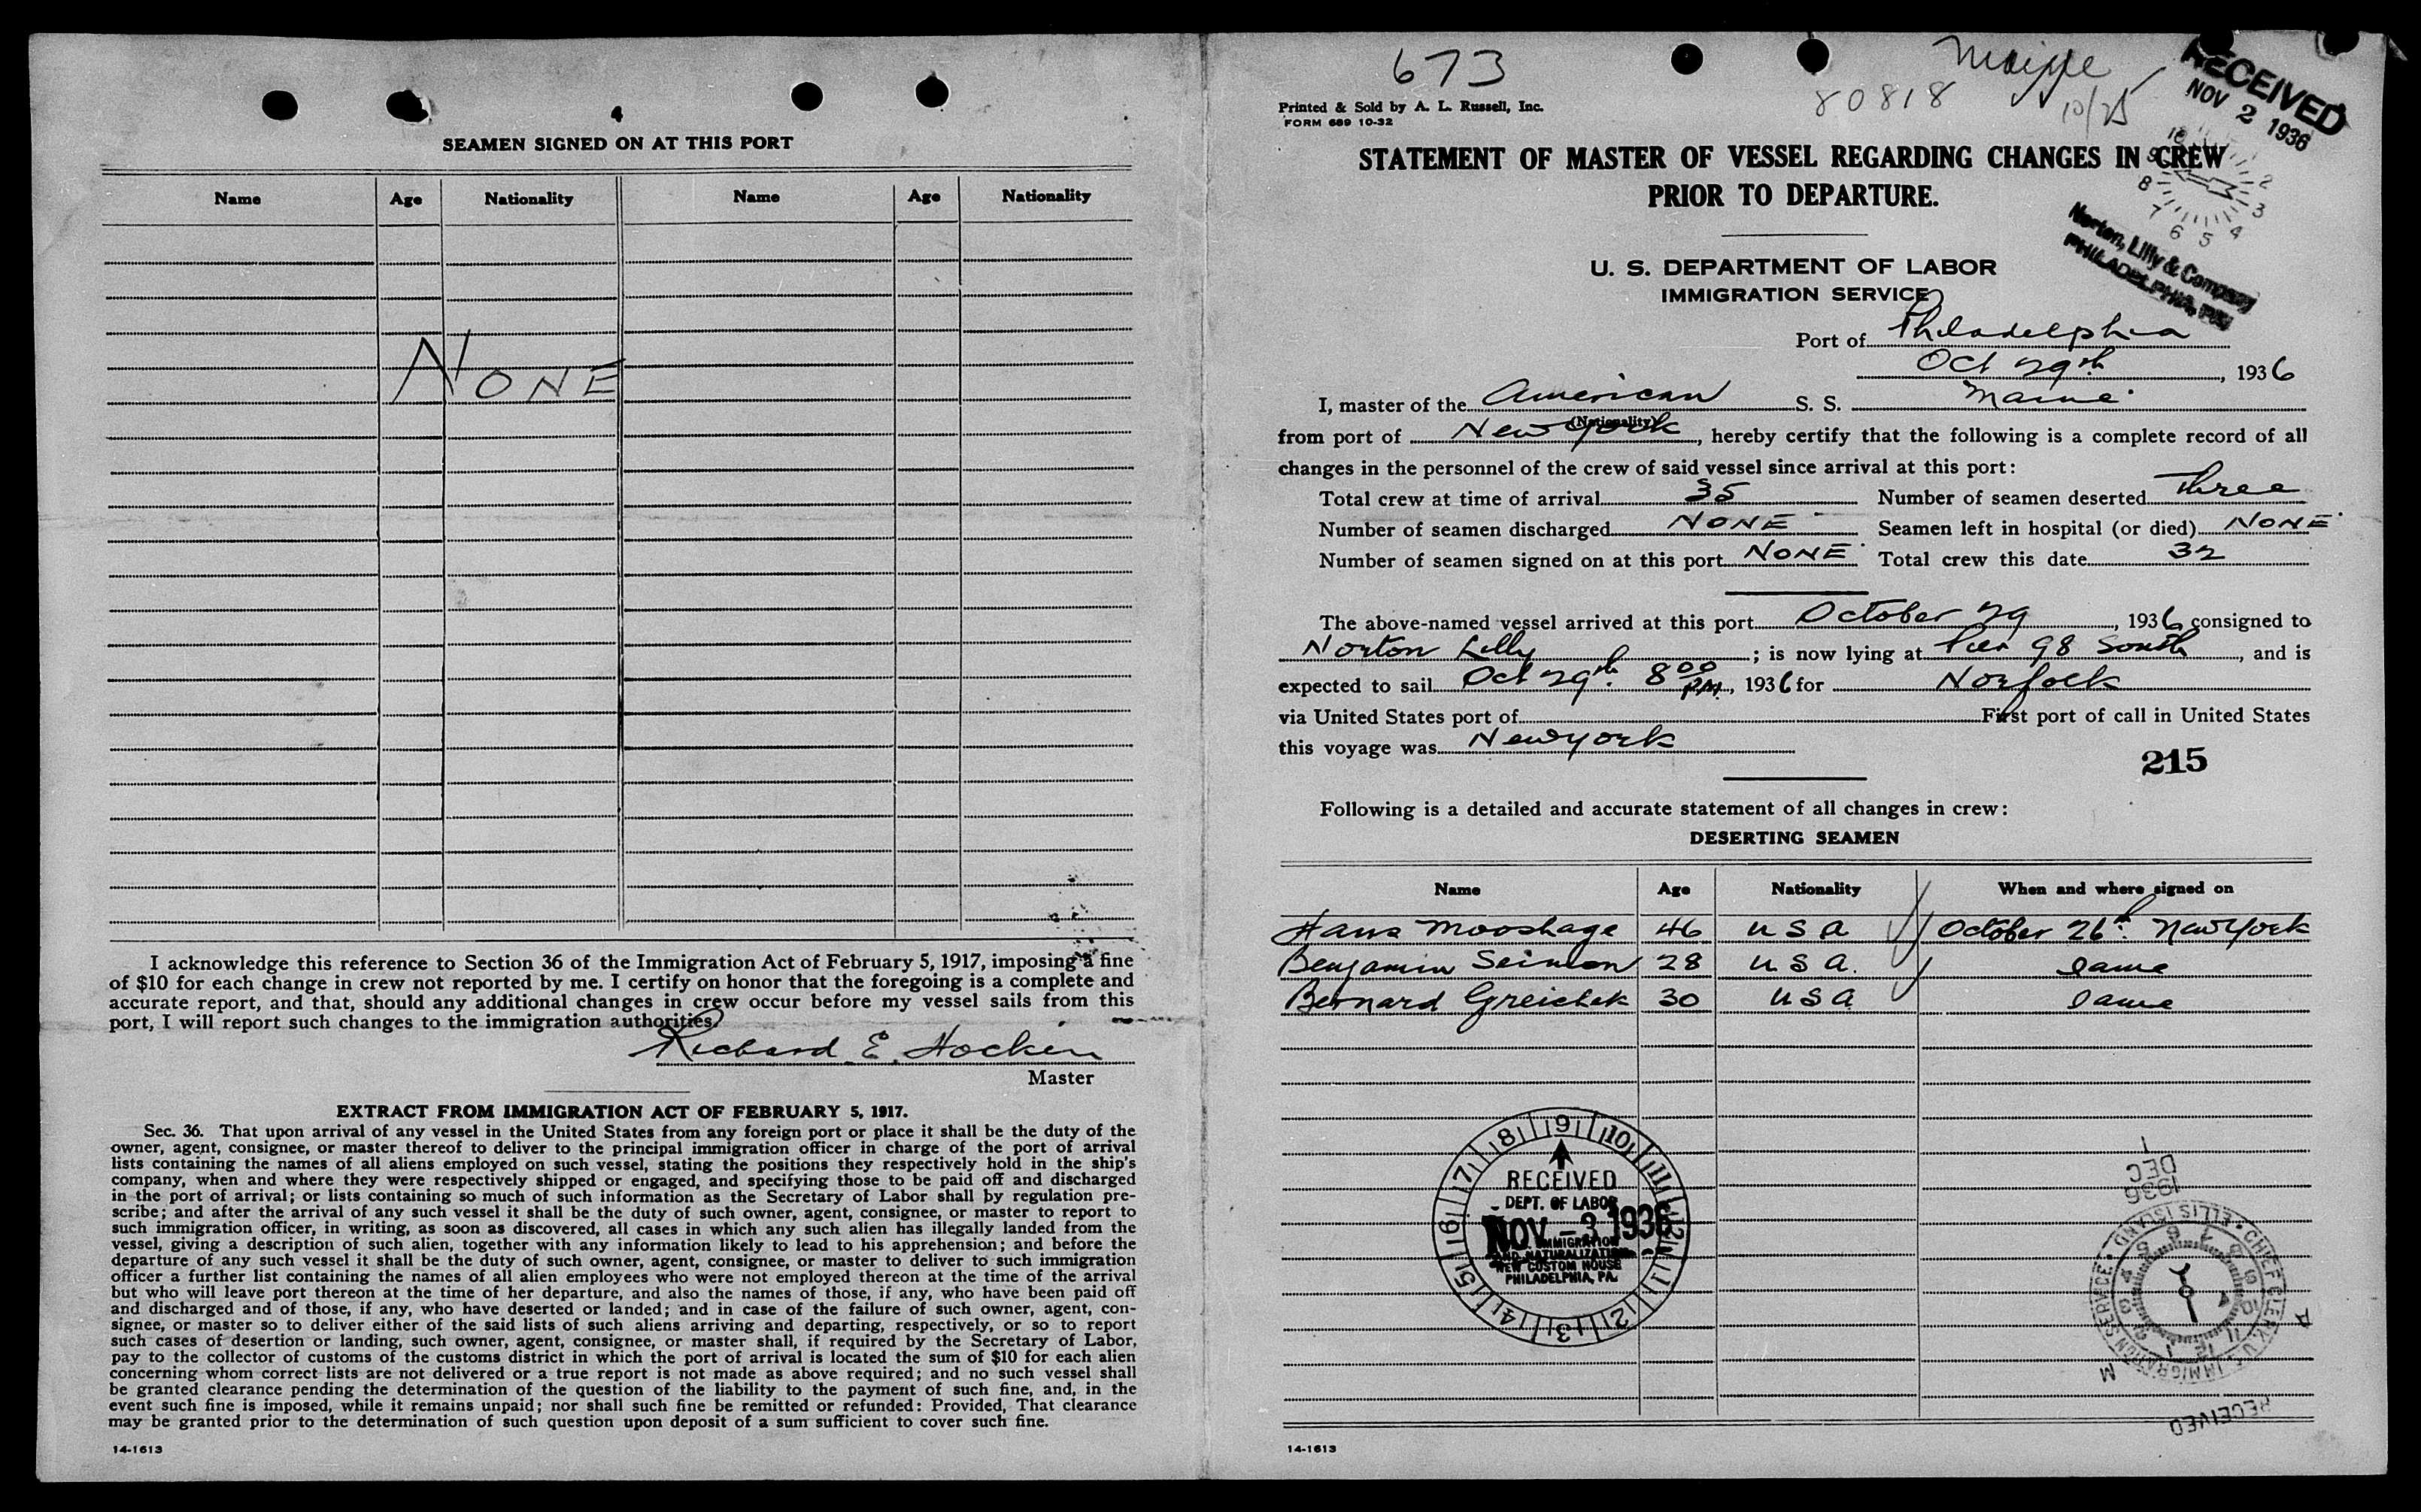 4
SEAMEN SIGNED ON AT THIS PORT
Name Age Nationality Name Age Nationality
NONE
I acknowledge this reference to Section 36 of the Immigration Act of February 5, 1917, imposing a fine
of $10 for each change in crew not reported by me. I certify on honor that the foregoing is a complete and
accurate report, and that, should any additional changes in crew occur before my vessel sails from this
port, I will report such changes to the immigration authorities.
Richard E. Hocken
Master
EXTRACT FROM IMMIGRATION ACT OF FEBRUARY 5, 1917.
Sec. 36. That upon arrival of any vessel in the United States from any foreign port or place it shall be the duty of the
owner, agent, consignee, or master thereof to deliver to the principal immigration officer in charge of the port of arrival
lists containing the names of all aliens employed on such vessel, stating the positions they respectively hold in the ship's
company, when and where they were respectively shipped or engaged, and specifying those to be paid off and discharged
in the port of arrival; or lists containing so much of such information as the Secretary of Labor shall by regulation pre-
scribe; and after the arrival of any such vessel it shall be the duty of such owner, agent, consignee, or master to report to
such immigration officer, in writing, as soon as discovered, all cases in which any such alien has illegally landed from the
vessel, giving a description of such alien, together with any information likely to lead to his apprehension; and before the
departure of any such vessel it shall be the duty of such owner, agent, consignee, or master to deliver to such immigration
officer a further list containing the names of all alien employees who were not employed thereon at the time of the arrival
but who will leave port thereon at the time of her departure, and also the names of those, if any, who have been paid off
and discharged and of those, if any, who have deserted or landed; and in case of the failure of such owner, agent, con-
signee, or master so to deliver either of the said lists of such aliens arriving and departing, respectively, or so to report
such cases of desertion or landing, such owner, agent, consignee, or master shall, if required by the Secretary of Labor,
pay to the collector of customs of the customs district in which the port of arrival is located the sum of $10 for each alien
concerning whom correct lists are not delivered or a true report is not made as above required; and no such vessel shall
be granted clearance pending the determination of the question of the liability to the payment of such fine, and, in the
event such fine is imposed, while it remains unpaid; nor shall such fine be remitted or refunded: Provided, That clearance
may be granted prior to the determination of such question upon deposit of a sum sufficient to cover such fine.
14-1613
673
80818
10/25
Printed & Sold by A. L. Russell, Inc.
FORM 689 10-32
RECEIVED
NOV 2 1936
Norton, Lilly & Company
PHILADELPHIA, PA.
STATEMENT OF MASTER OF VESSEL REGARDING CHANGES IN CREW
PRIOR TO DEPARTURE.
U. S. DEPARTMENT OF LABOR
IMMIGRATION SERVICE
Port of Philadelphia
Oct 29th, 1936
I, master of the American S. S. Maine
(Nationality)
from port of New York, hereby certify that the following is a complete record of all
changes in the personnel of the crew of said vessel since arrival at this port:
Total crew at time of arrival 35 Number of seamen deserted Three
Number of seamen discharged NONE Seamen left in hospital (or died) NONE
Number of seamen signed on at this port NONE Total crew this date 32
The above-named vessel arrived at this port October 29, 1936, consigned to
Norton Lilly; is now lying at Pier 98 South, and is
expected to sail Oct 29th. 8 00 PM., 1936 for Norfolk
via United States port of First port of call in United States
this voyage was New York
215
Following is a detailed and accurate statement of all changes in crew:
DESERTING SEAMEN
Name Age Nationality When and where signed on
Hans Mooshage 46 U S A October 26th. New York
Benjamin Seimon 28 U S A. Same
Bernard Greichek 30 U S A Same
RECEIVED
DEPT. OF LABOR
NOV - 3 1936
IMMIGRATION
AND NATURALIZATION
NEW CUSTOM HOUSE
PHILADELPHIA, PA.
1936
DEC
1
CHIEF CLERK U.S. IMMIGRATION SERVICE · ELLIS ISLAND
A
M
RECEIVED
14-1613